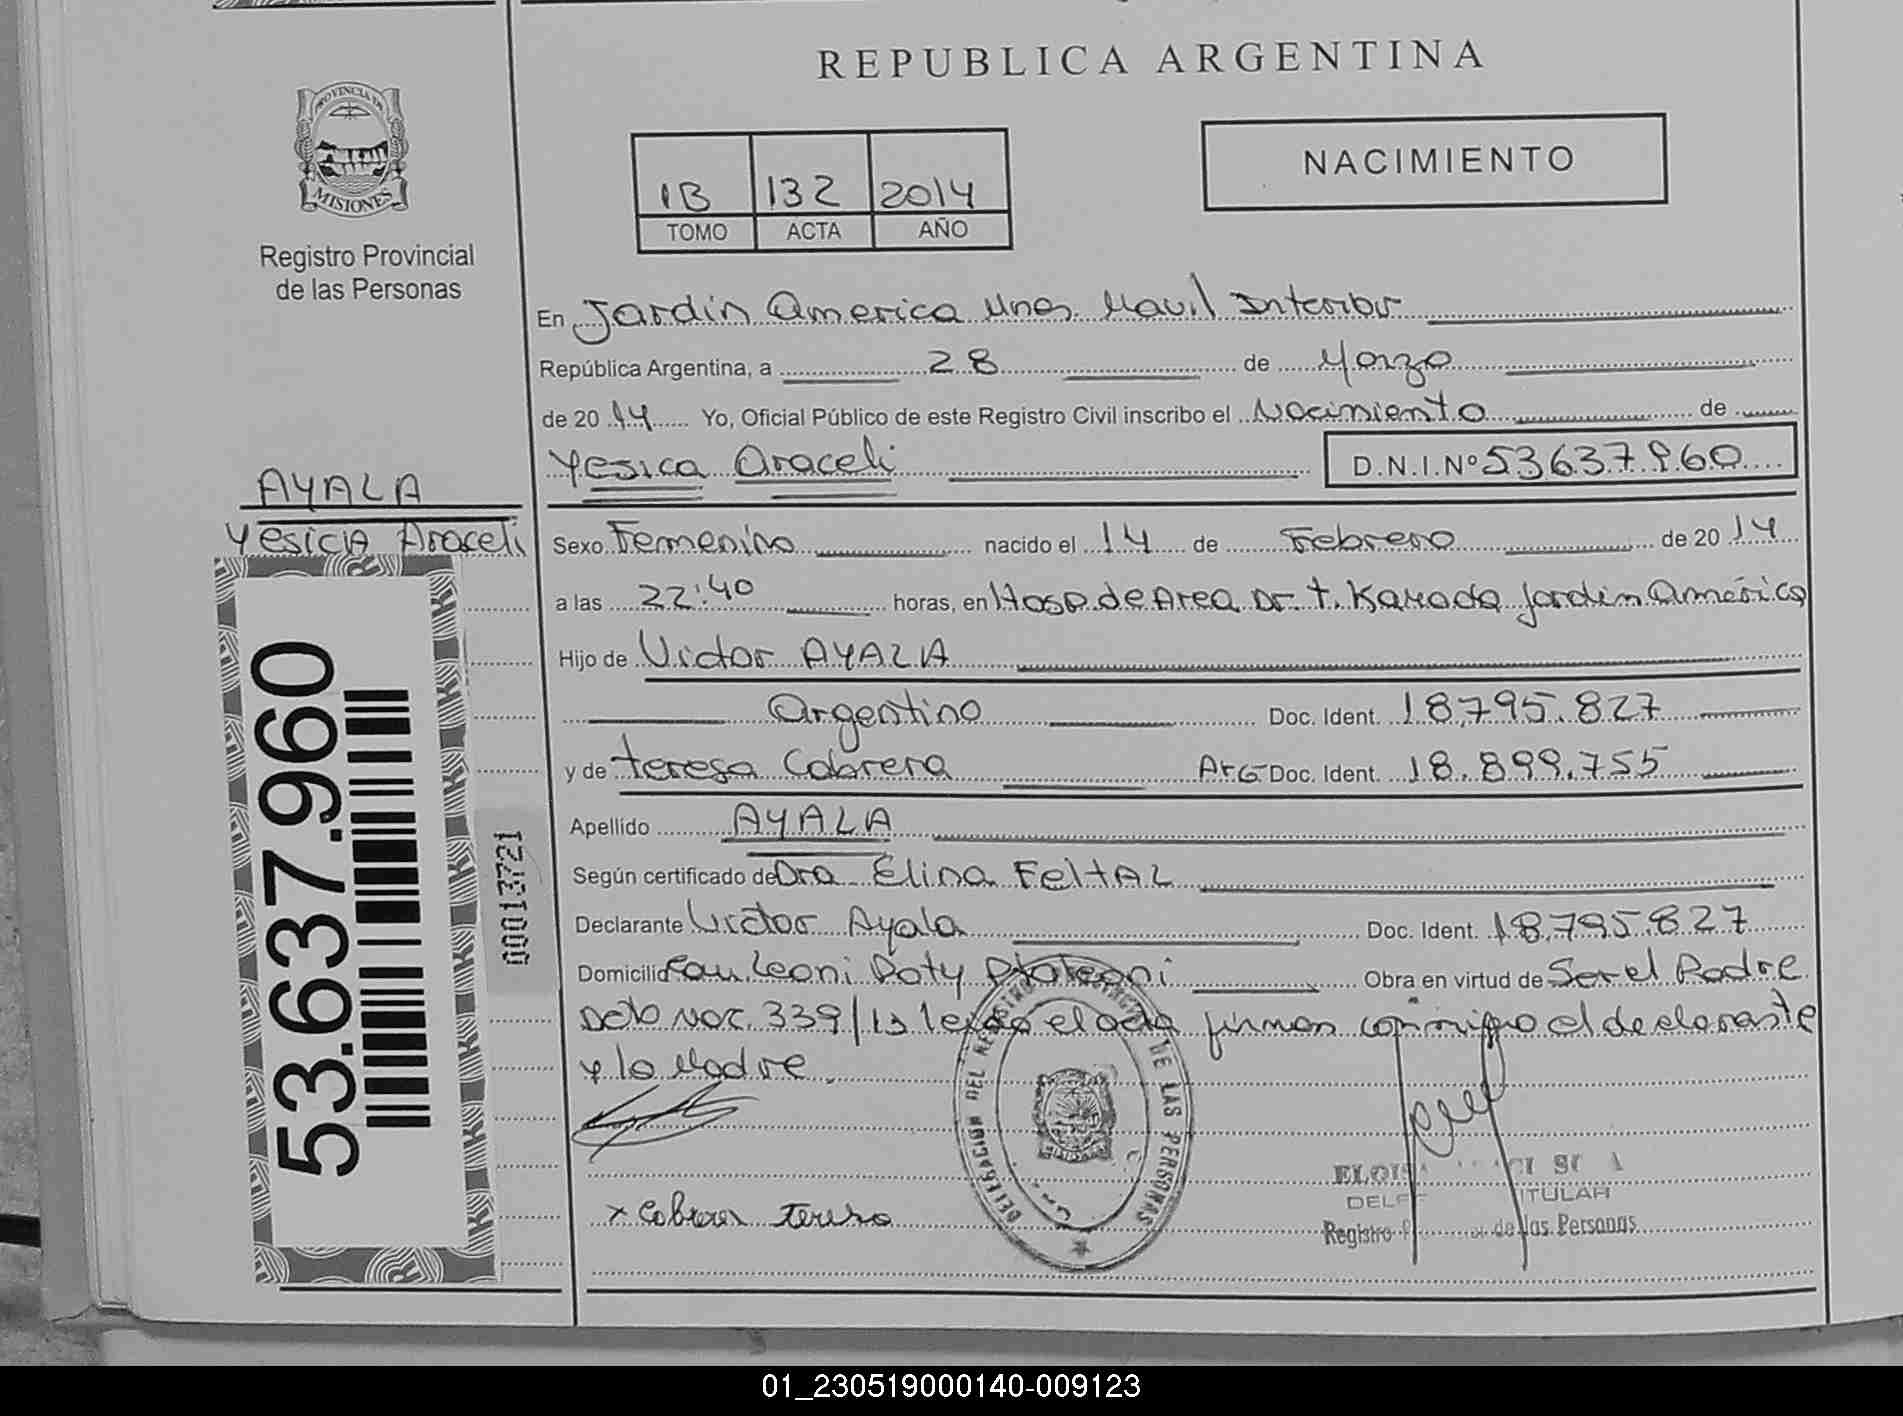 REPUBLICA ARGENTINA
PROVINCIA DE
MISIONES
Registro Provincial
de las Personas
NACIMIENTO
1B 132 2014
TOMO ACTA AÑO
En Jardín America Mnes. Movil Interior
República Argentina, a 28 de Marzo
de 2014 Yo, Oficial Público de este Registro Civil inscribo el Nacimiento de
Yesica Araceli D.N.I.Nº 53637960
AYALA
Yesicia Araceli
Sexo Femenino nacido el 14 de Febrero de 2014
a las 22:40 horas, en Hosp. de Area Dr. T. Kamada Jardín América
Hijo de Victor AYALA
Argentino Doc. Ident. 18.795.827
y de Teresa Cabrera Arg Doc. Ident. 18.899.755
Apellido AYALA
Según certificado de Dra Elina FeltAL
Declarante Victor Ayala Doc. Ident. 18.795.827
Domicilio Leoni Poty Pto Leoni Obra en virtud de Ser el Padre
339/13 leida el acta firman conmigo el declarante
y la Madre.
53.637.960
00013721
DELEGACION DEL REGISTRO PROVINCIAL DE LAS PERSONAS
x Cabrera Teresa
Registro de las Personas
01_230519000140-009123